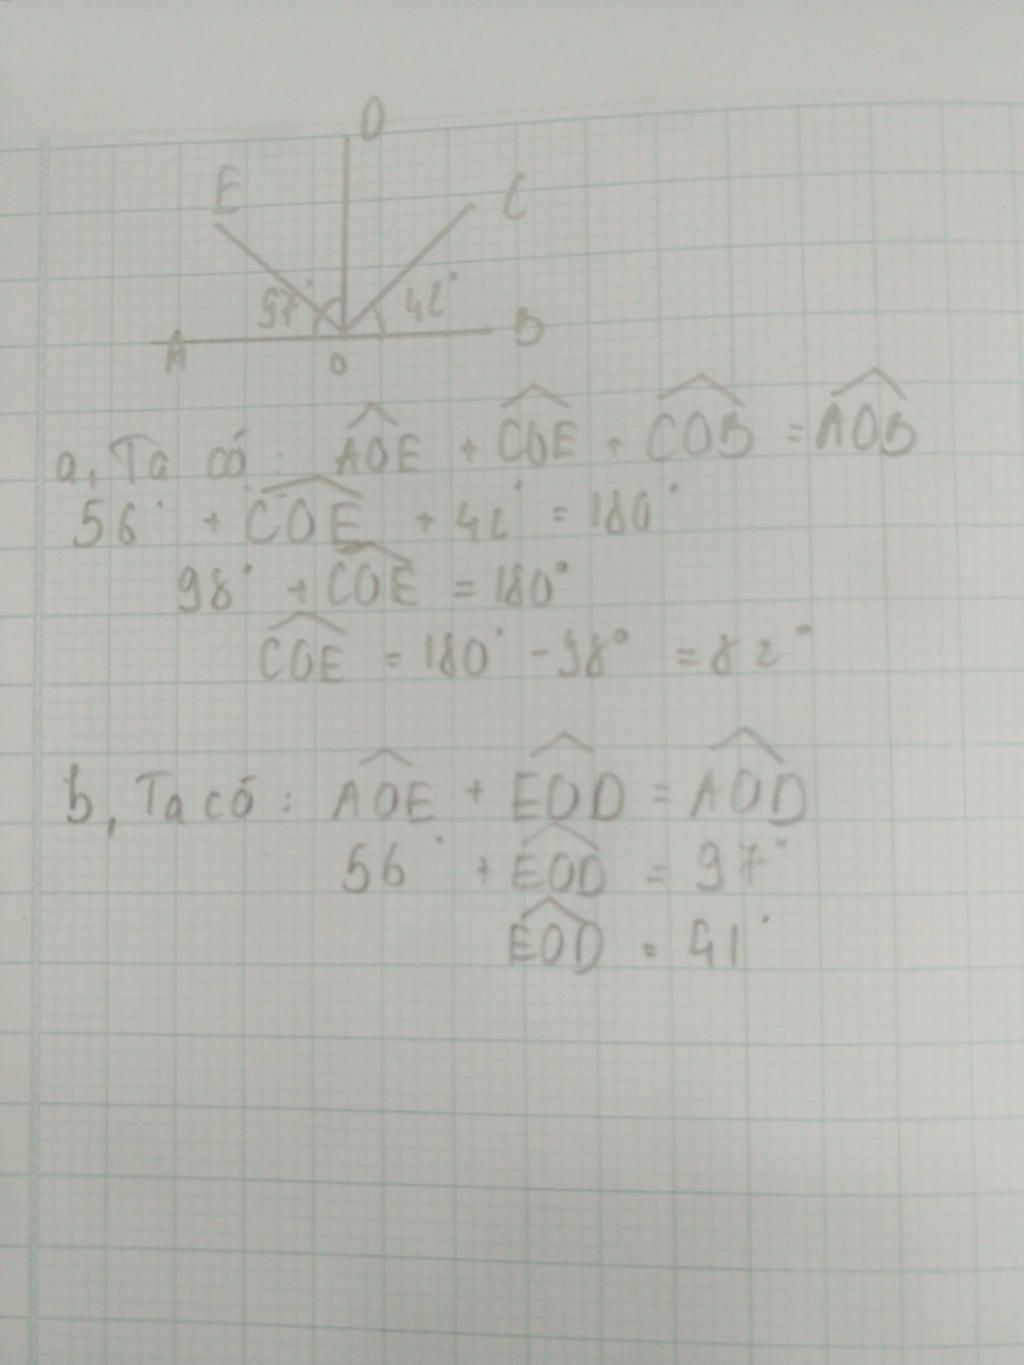 D
E
C
97°
42°
A
B
O
a, Ta có: AOE + COE + COB = AOB
56° + COE + 42° = 180°
98° + COE = 180°
COE = 180° - 98° = 82°
b, Ta có: AOE + EOD = AOD
56° + EOD = 97°
EOD = 41°